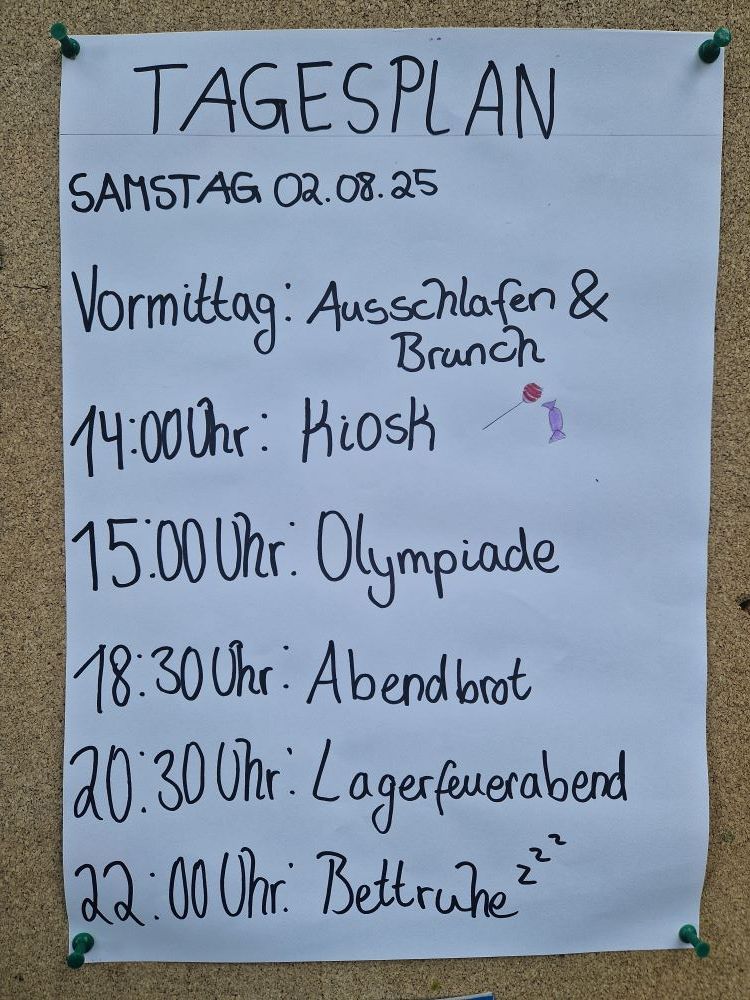 TAGESPLAN
SAMSTAG 02.08.25
Vormittag: Ausschlafen &
Brunch
14:00 Uhr: Kiosk
15:00 Uhr: Olympiade
18:30 Uhr: Abendbrot
20:30 Uhr: Lagerfeuerabend
22:00 Uhr: Bettruhe zzz